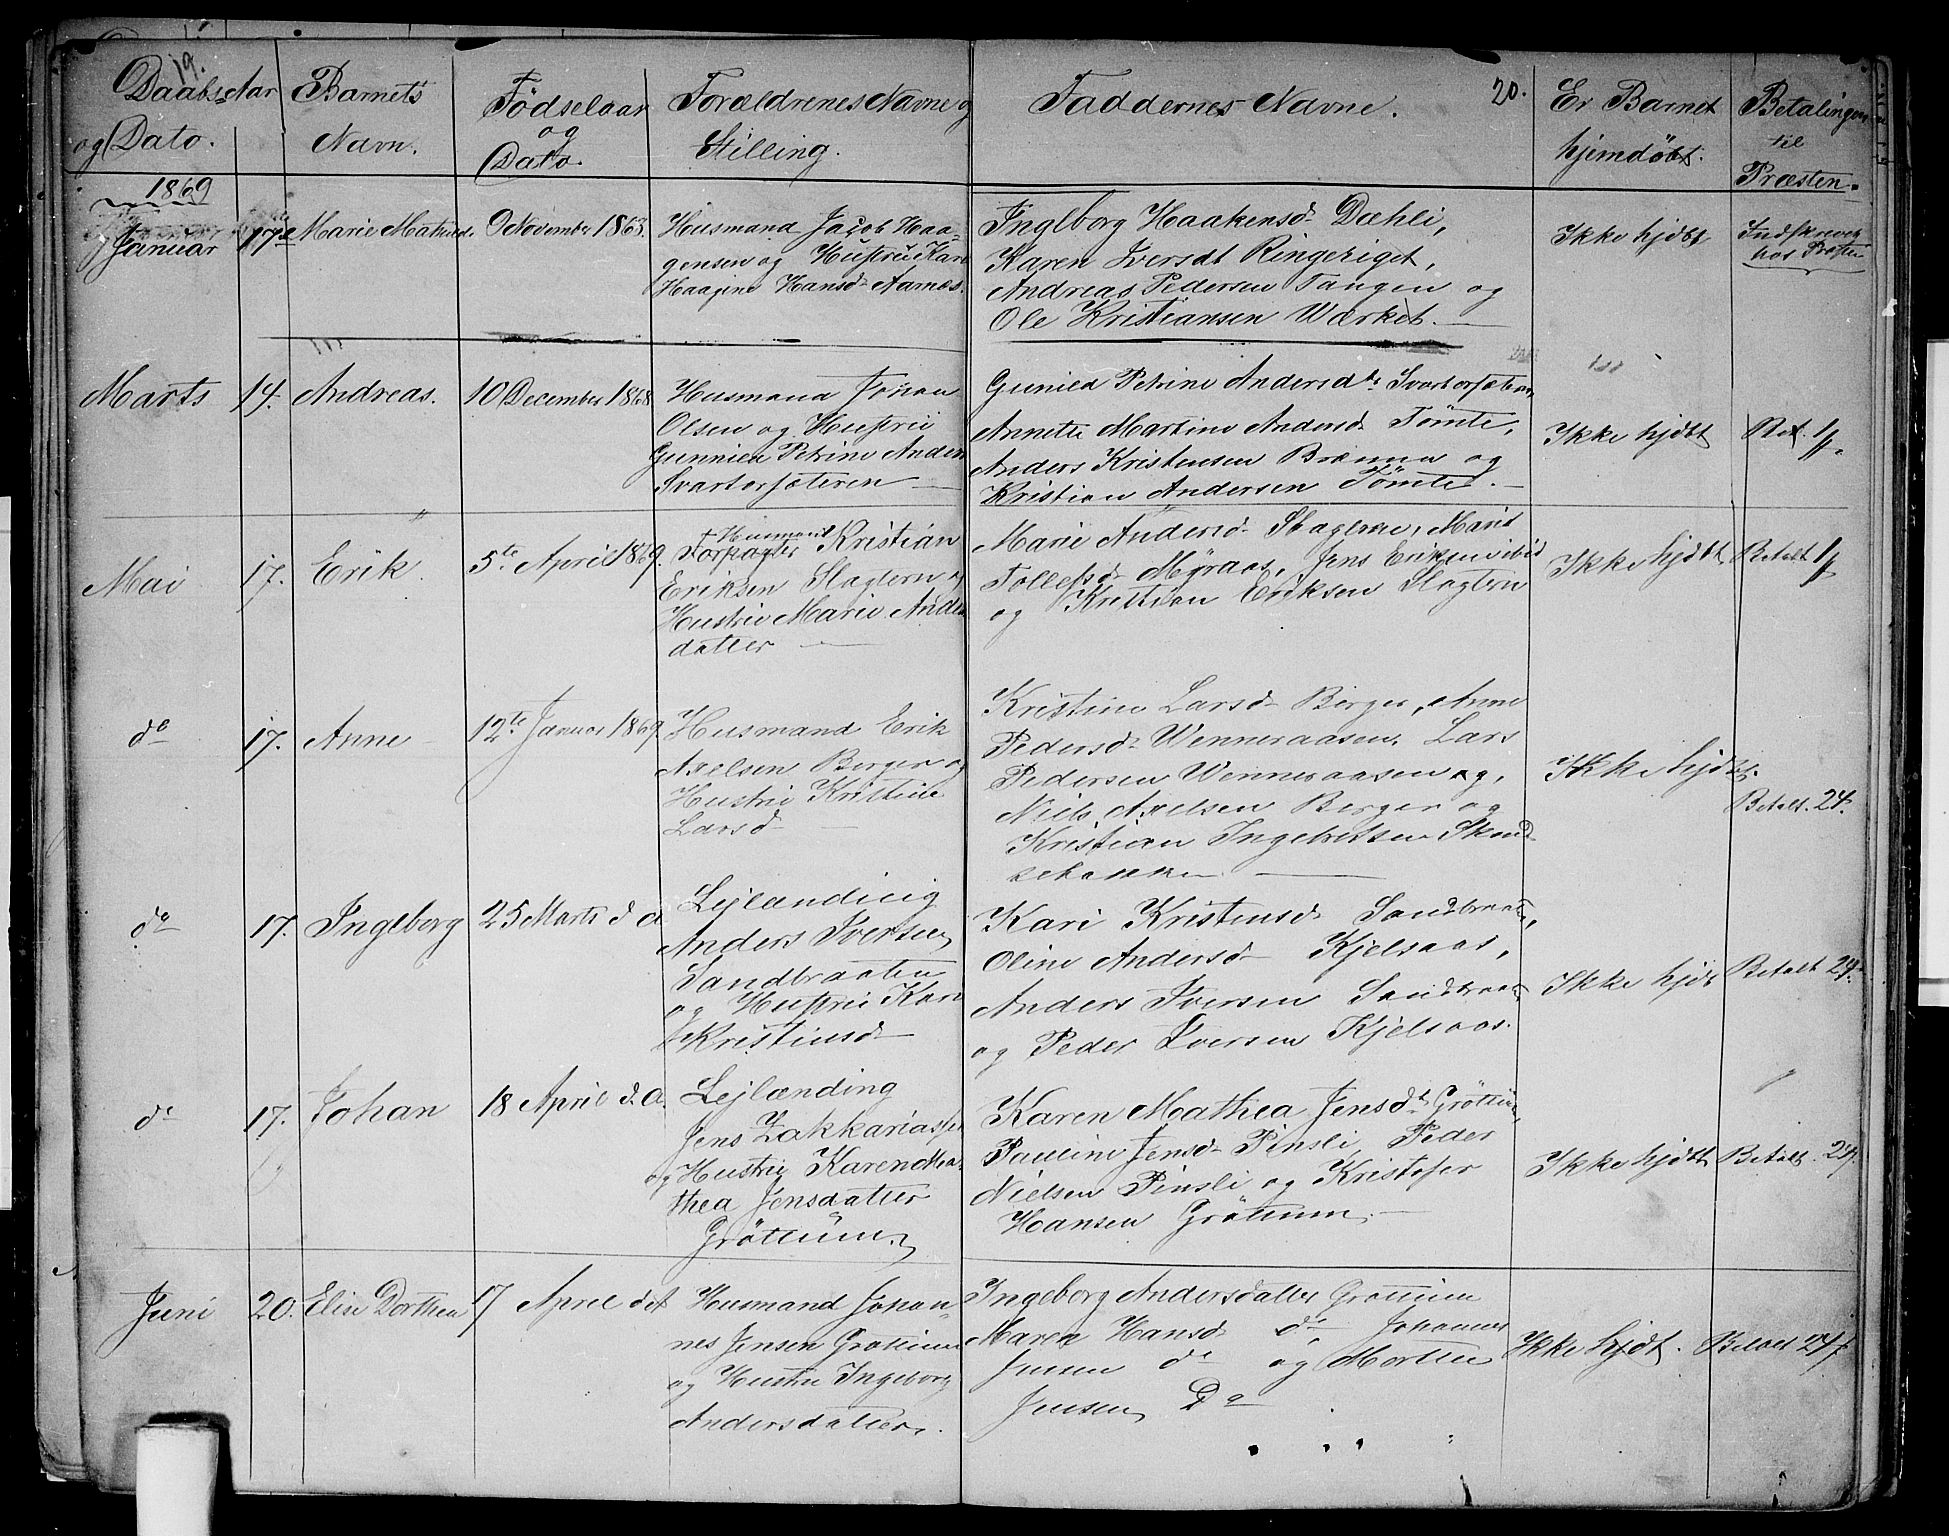 19.
Daabs Aar
og Dato.
Barnets
Navn.
Födselaar
og
Dato.
Forældrenes Navne og
Stilling.
Faddernes Navne.
20.
Er Barnet
hjemdöbt.
Betalingen
til
Præsten.
1869
Januar
17de
Marie Mathilde
9 November 1868.
Husmand Jacob Haa-
gensen og Hustrü Kari
Haagine Hansd. Aarnæs.
Inglborg Haakensd. Dæhli,
Karen Iversdt Ringeriget,
Andreas Pedersen Tangen og
Ole Kristiansen Wærket.
Ikke hjdbt
Indskrevet
hos Præsten
Marts
14.
Andreas.
10 December 1868.
Husmand Johan
Olsen og Hustrü
Gunnild Petrine Anders
Svartorsæteren
Gunild Petrine Andersdtr Svartorsæteren,
Annette Martine Andersd. Tömte,
Anders Kristensen Brænna og
Kristian Andersen Tömte.
Ikke hjdbt
Bet. 1ƒ.
Mai
17.
Erik.
5te April 1869.
Husmand
Torpagter Kristian
Eriksen Slagtern og
Hustrü Marie Anders
datter
Marie Andersd. Slagtern, Marit
Tollefsd. Myraas, Jens Eriksen ibid
og Kristian Eriksen Slagtern
Ikke hjdbt
Betalt 1ƒ
do
17.
Anne
12te Januar 1869.
Husmand Erik
Axelsen Berger og
Hustrü Kristine
Larsd.
Kristine Larsd. Berger, Anne
Pedersd. Wenneraasen, Lars
Pedersen Wenneraasen og,
Niels Axelsen Berger og
Kristian Ingebretsen
Ikke hjdbt.
Betalt. 24.
do
17.
Inglborg
25 Marts d. A.
Lejlænding
Anders Iversen
Sandbraaten
og Hustrü Kari
Kristensd.
Kari Kristensd. Sandbraaten,
Oline Andersd. Kjelsaas,
Anders Iversen Sandbraaten
og Peder Iversen Kjelsaas.
Ikke hjdbt
Betalt 24.
do
17.
Johan
18 April d. A.
Lejlænding
Jens Zakkariassen
og Hustrü Karen Ma-
thea Jensdatter
Gröttüm.
Karen Mathea Jensdt Gröttüm,
Pauline Jensd. Pinsli, Peder
Nielsen Pinsli og Kristofer
Hansen Gröttum.
Ikke hjdbt
Betalt. 24.
Juni
20.
Elise Dorthea
17 April d. A
Husmand Johan-
nes Jensen Gröttum
og Hustru Ingeborg
Andersdatter.
Ingeborg Andersdatter Gröttum
Maren Hansd. do, Johannes
Jensen do og Morten
Jensen Do
Ikke hjdt.
Betalt 24ƒ